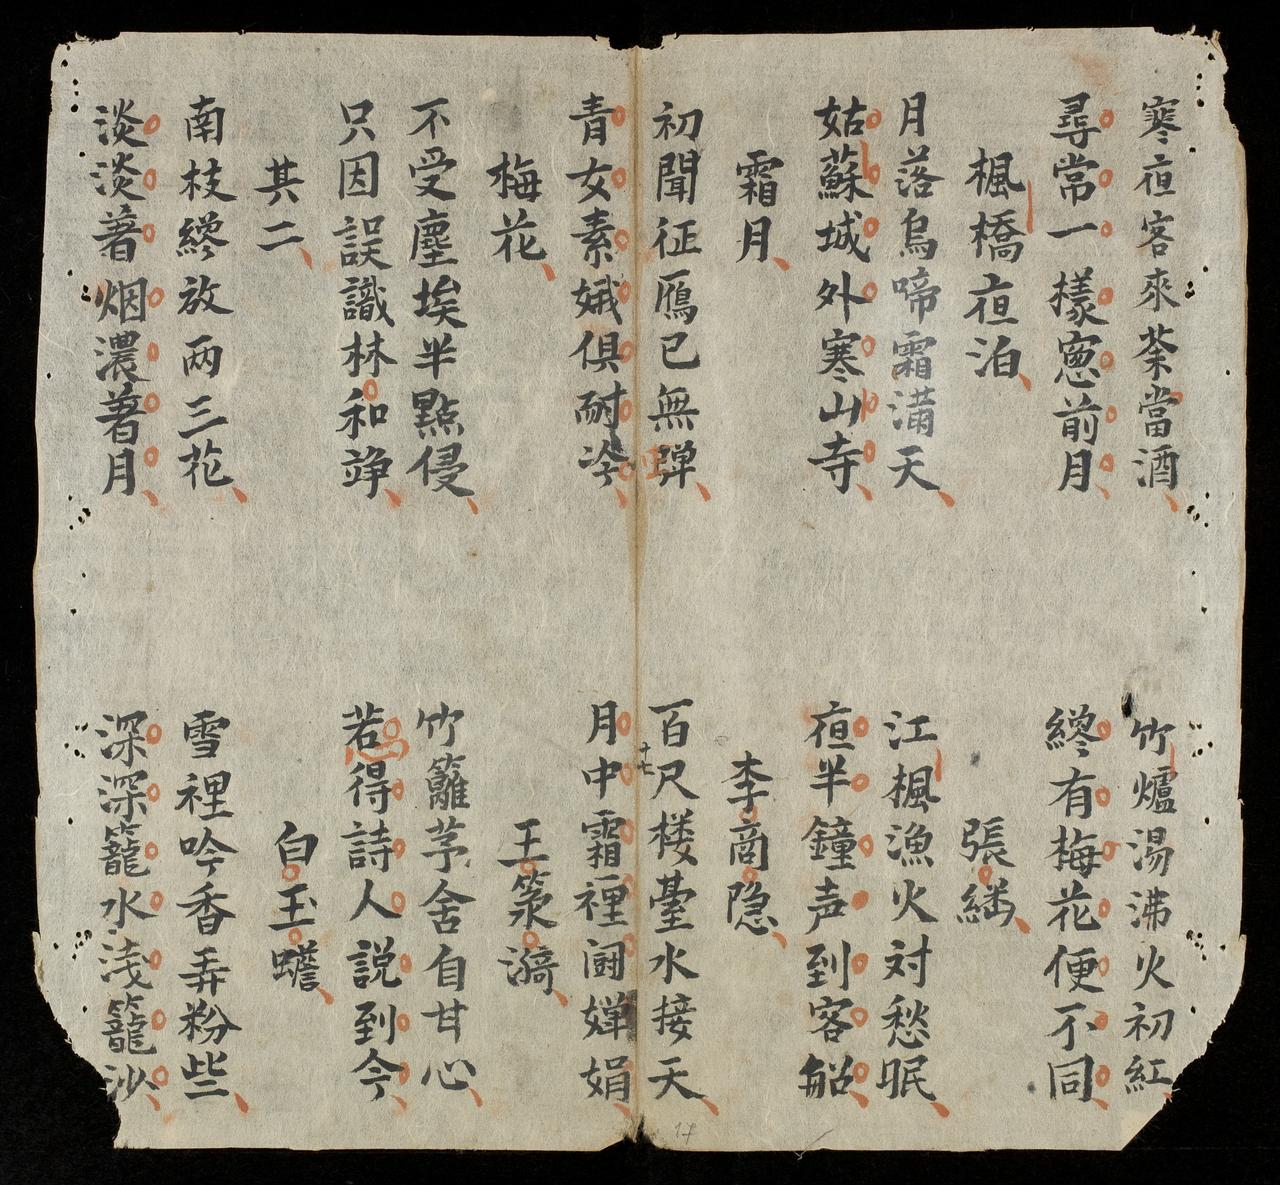 寒夜客來茶當酒　竹爐湯沸火初紅
尋常一樣窻前月　纔有梅花便不同
楓橋夜泊　張繼
月落烏啼霜滿天　江楓漁火対愁眠
姑蘇城外寒山寺　夜半鐘声到客船
霜月　李商隐
初聞征鴈已無蟬　百尺楼䑓水接天
十七
青女素娥俱耐冷　月中霜裡闘嬋娟
梅花　王箓漪
不受塵埃半點侵　竹籬茅舍自甘心
只因誤識林和靖　惹得詩人説到今
其二　白玉蟾
南枝纔放两三花　雪裡吟香弄粉些
淡淡著烟濃著月　深深籠水浅籠沙
17